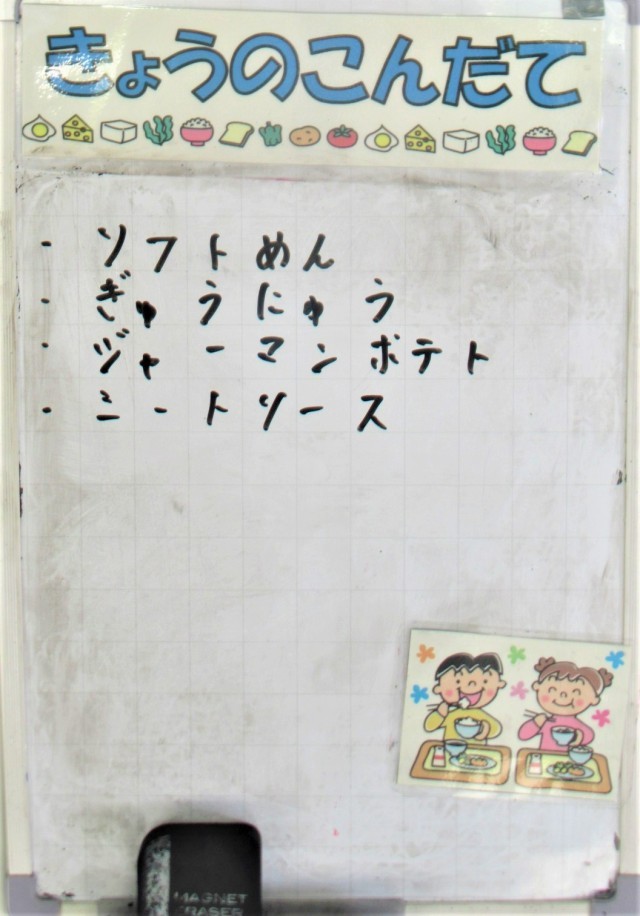 きょうのこんだて
・ソフトめん
・ぎゅうにゅう
・ジャーマンポテト
・ミートソース
MAGNET
ERASER